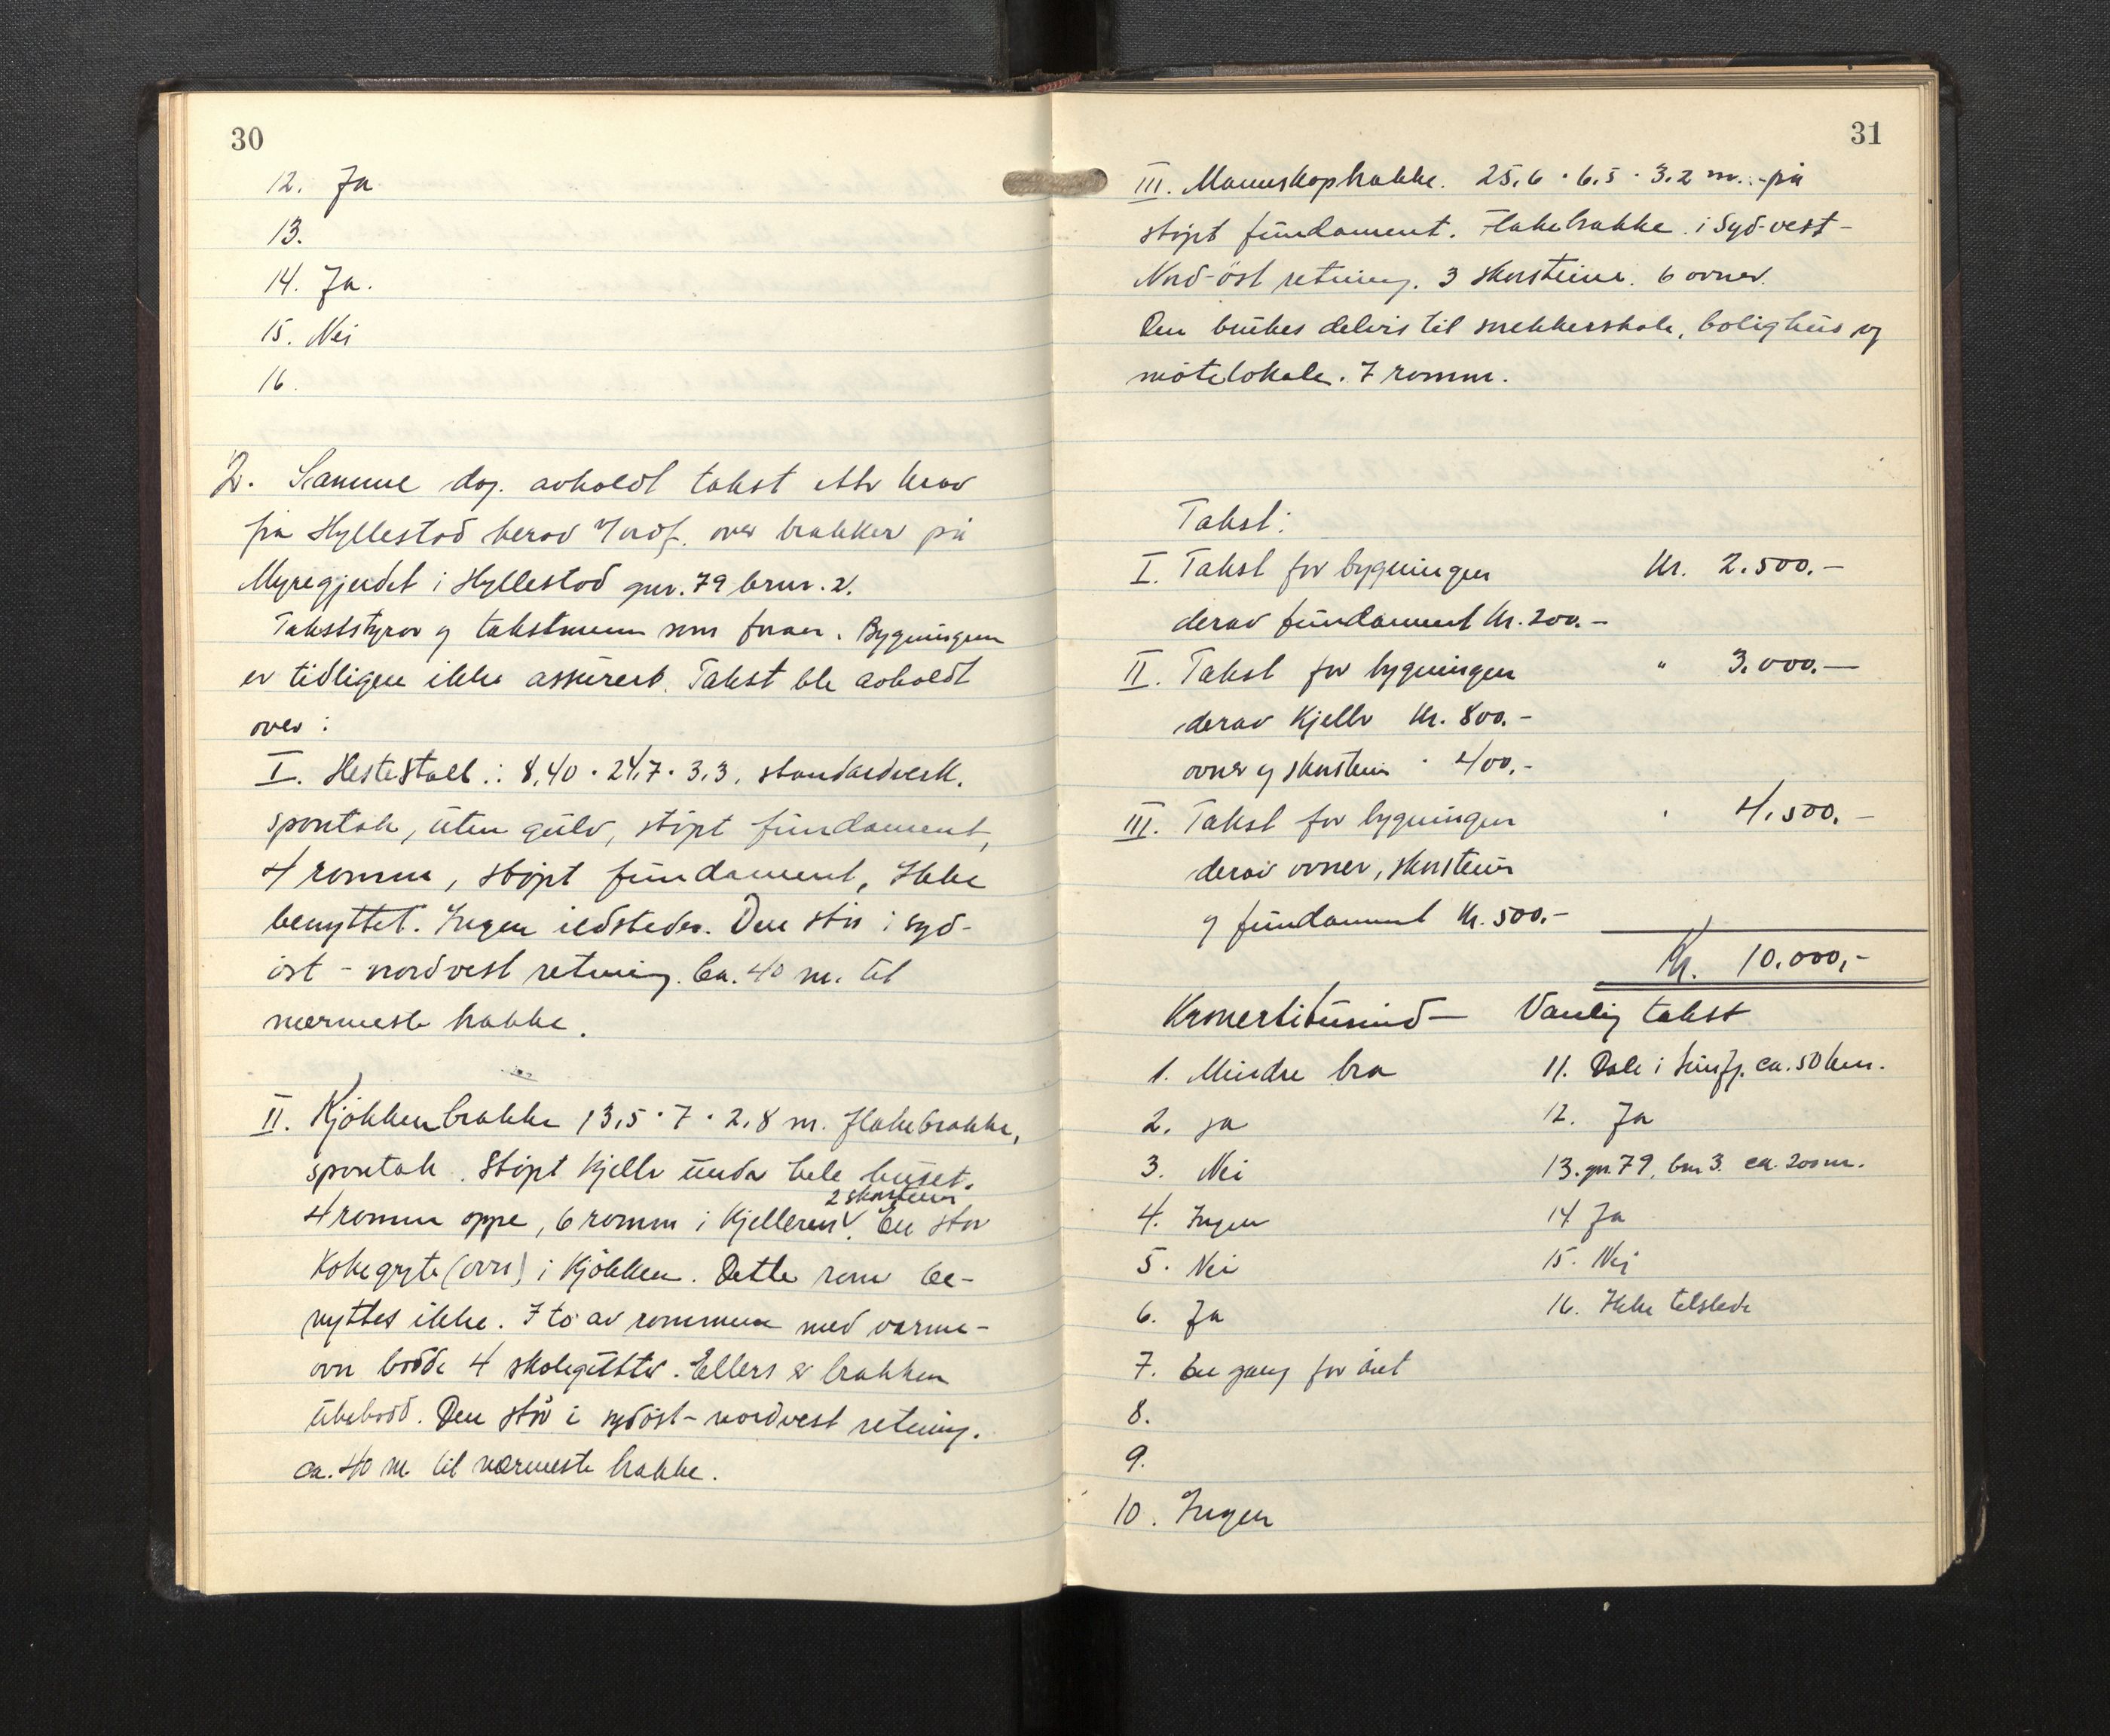 30
12. Ja
13.
14. Ja.
15. Nei
16.
2. Samme dag. avholdt takst etter krav
fra Hyllestad herad over brakker på
Myregjerdet i Hyllestad gnr. 79 brnr. 2.
Takststyrar og takstmenn som foran. Bygningen
er tidligere ikke assurert. Takst ble avholdt
over:
I. Hestestall: 8,40 · 24,7 · 3,3. standardverk.
spontak, uten gulv, støpt fundament,
4 romm, støpt fundament, Ikke
benyttet. Ingen ildsteder. Den står i syd-
öst - nordvest retning. Ca. 40 m. til
nærmeste brakke.
II. Kjökkenbrakke 13,5 · 7 · 2,8 m. flakebrakke,
spontak. Støpt kjeller under hele huset.
2 skorsteiner
4 romm oppe, 6 romm i kjelleren. En stor
kokegryte (ovn) i kjökken. Dette rom be-
nyttes ikke. I to av rommene med varme-
ovn bodde 4 skolegutter. Ellers er brakken
ubebodd. Den står i sydöst - nordvest retning.
ca. 40 m. til nærmeste brakke.
31
III. Mannskapbrakke. 25,6 · 6,5 · 3,2 m. på
støpt fundament. Flakebrakke i Syd-vest -
Nord-öst retning. 3 skorsteiner. 6 ovner.
Den brukes delvis til snekkerskole, bolighus og
møtelokale. 7 romm.
Takst:
I. Takst for bygningen Kr. 2.500.-
derav fundament Kr. 200.-
II. Takst for bygningen " 3.000.-
derav kjeller Kr. 800.-
ovner og skorstein " 400.-
III. Takst for bygningen " 4.500.-
derav ovner, skorstein
og fundament Kr. 500.-
Kr. 10.000,-
Kronertitusind - Vanlig takst
1. Mindre bra 11. Dale i Sunnfj. ca. 50 km.
2. Ja 12. Ja
3. Nei 13. gnr 79, bnr 3. ca. 200 m.
4. Ingen 14 Ja
5. Nei 15. Nei
6. Ja 16. Ikke tilstede
7. En gang for året
8.
9.
10. Ingen